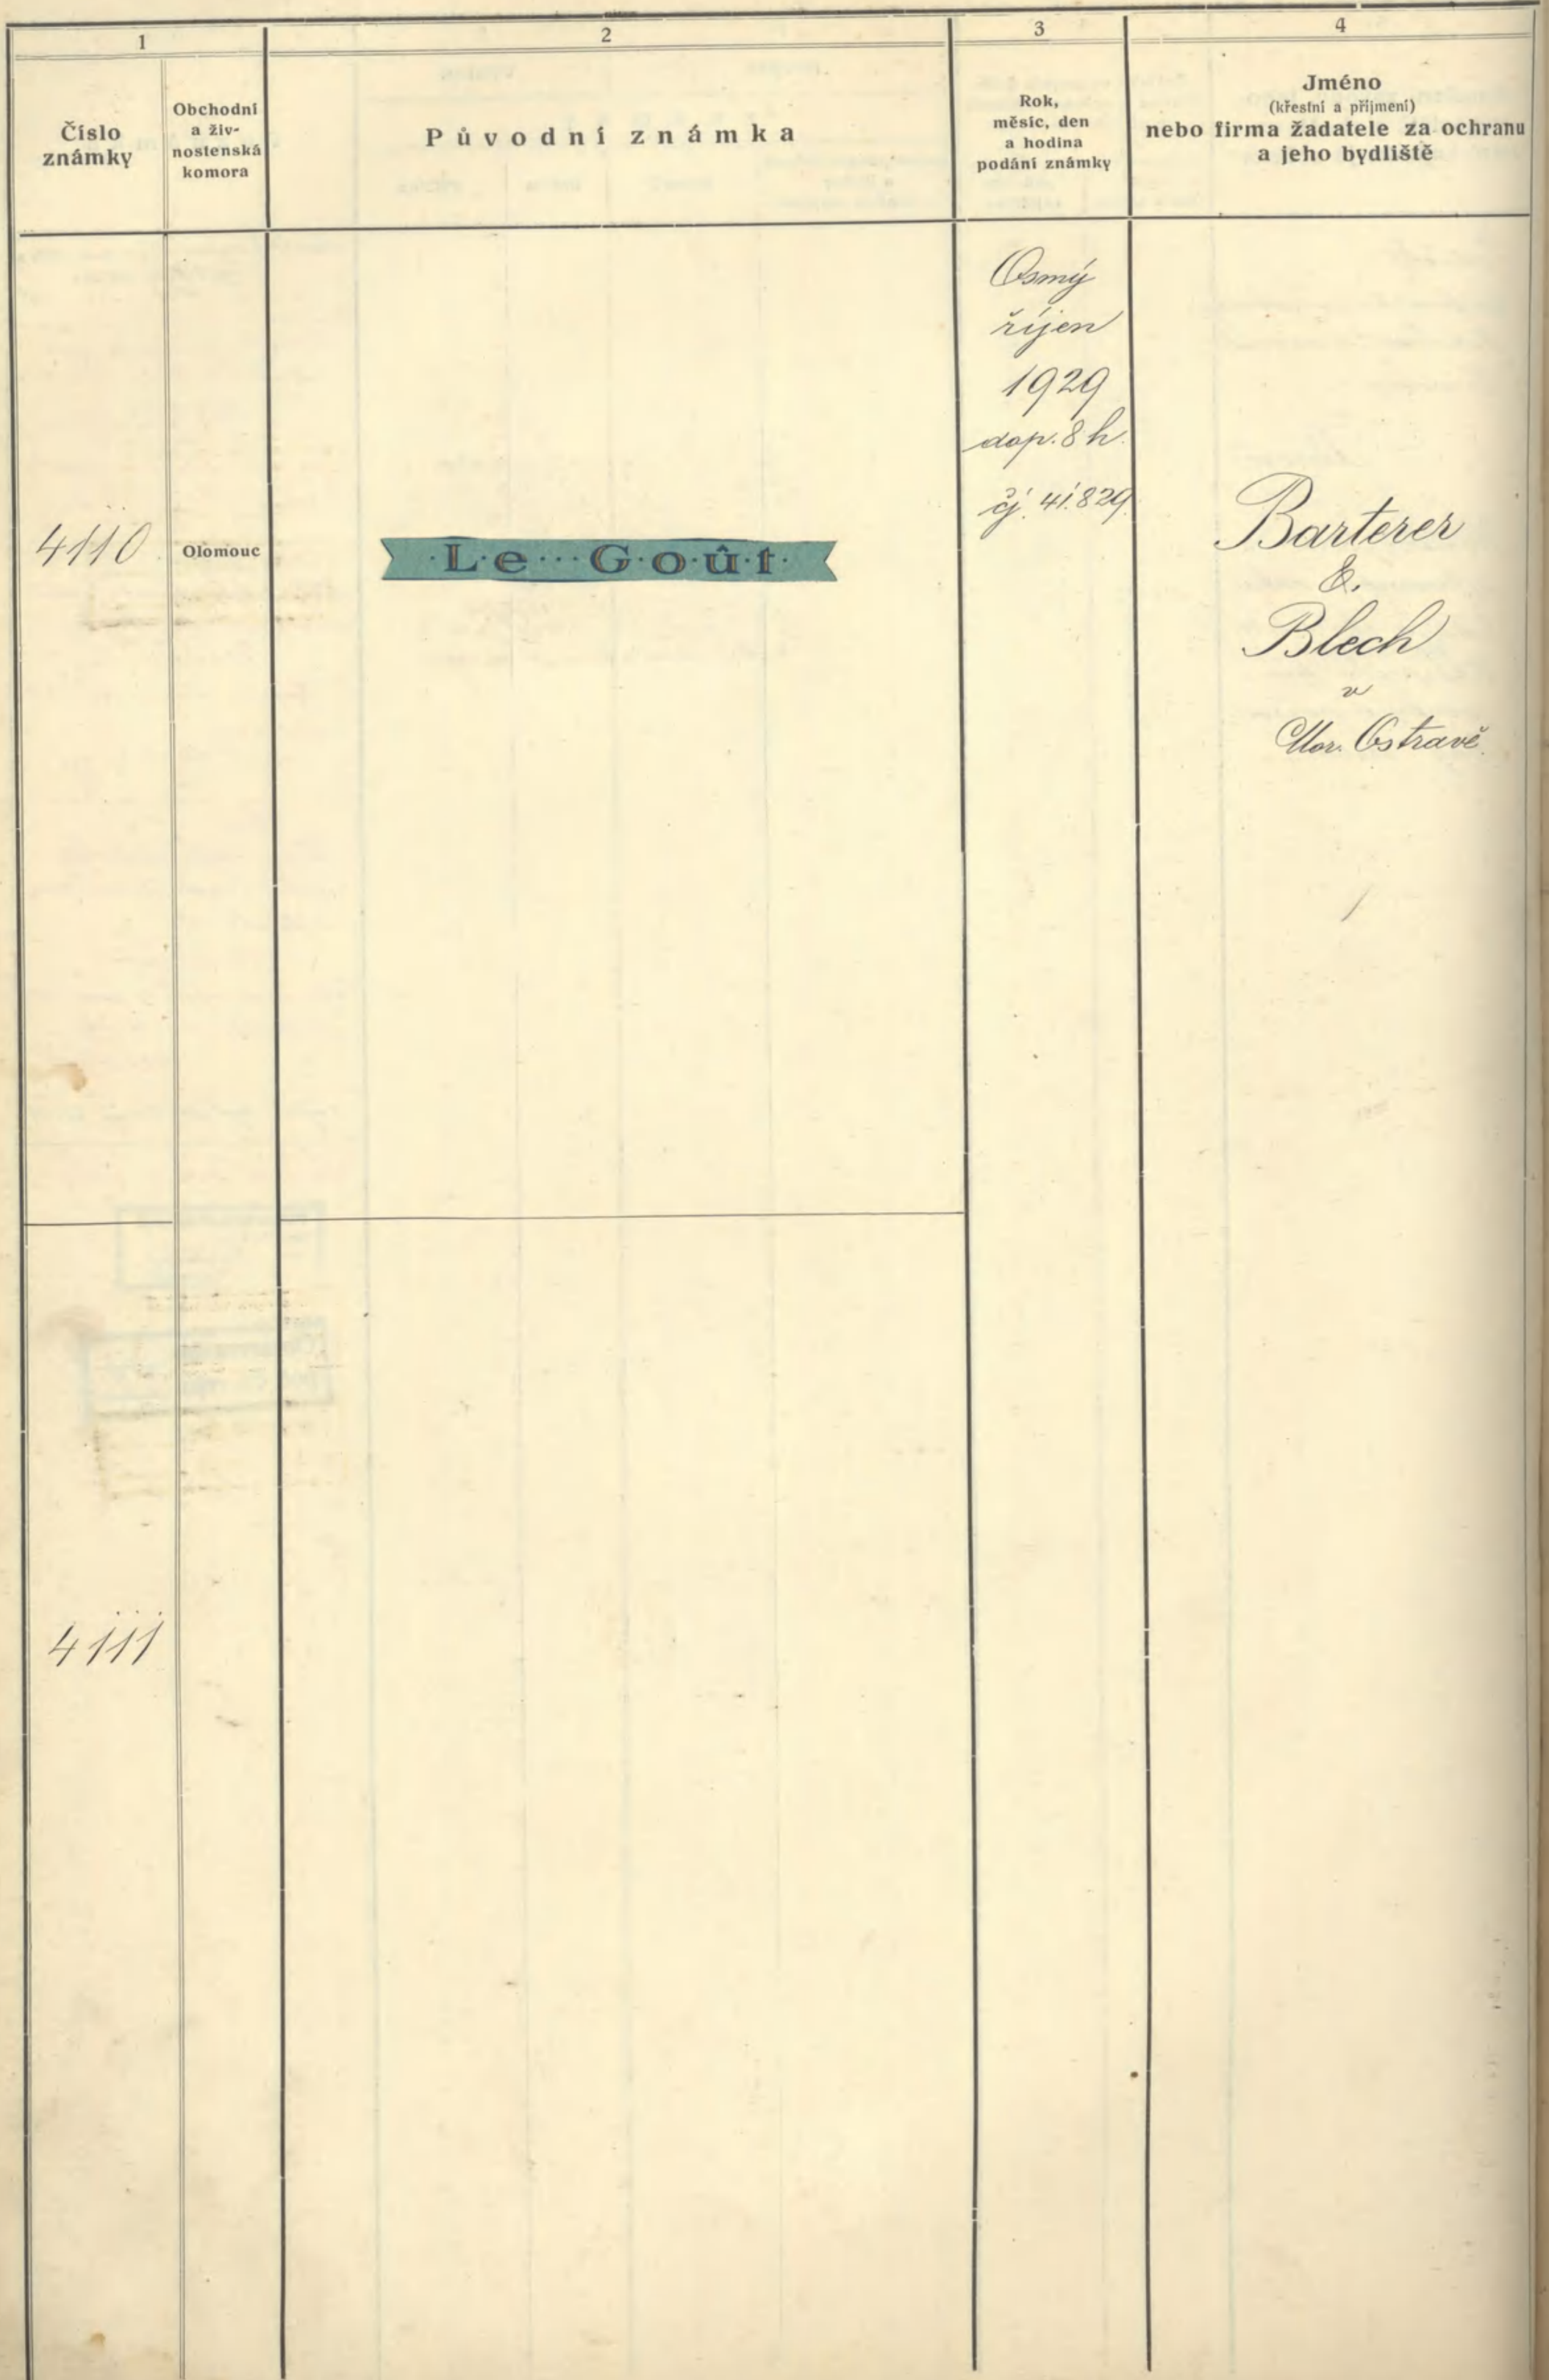 1
2
3
4
Číslo
známky
Obchodní
a živ-
nostenská
komora
Původní známka
Rok,
měsíc, den
a hodina
podání známky
Jméno
(křestní a příjmení)
nebo firma žadatele za ochranu
a jeho bydliště
Osmý
říjen
1929
dop. 8 h.
čj. 41.829.
4110
Olomouc
·L·e···G·o·û·t·
Barterer
&
Blech
v
Mor. Ostravě.
4111